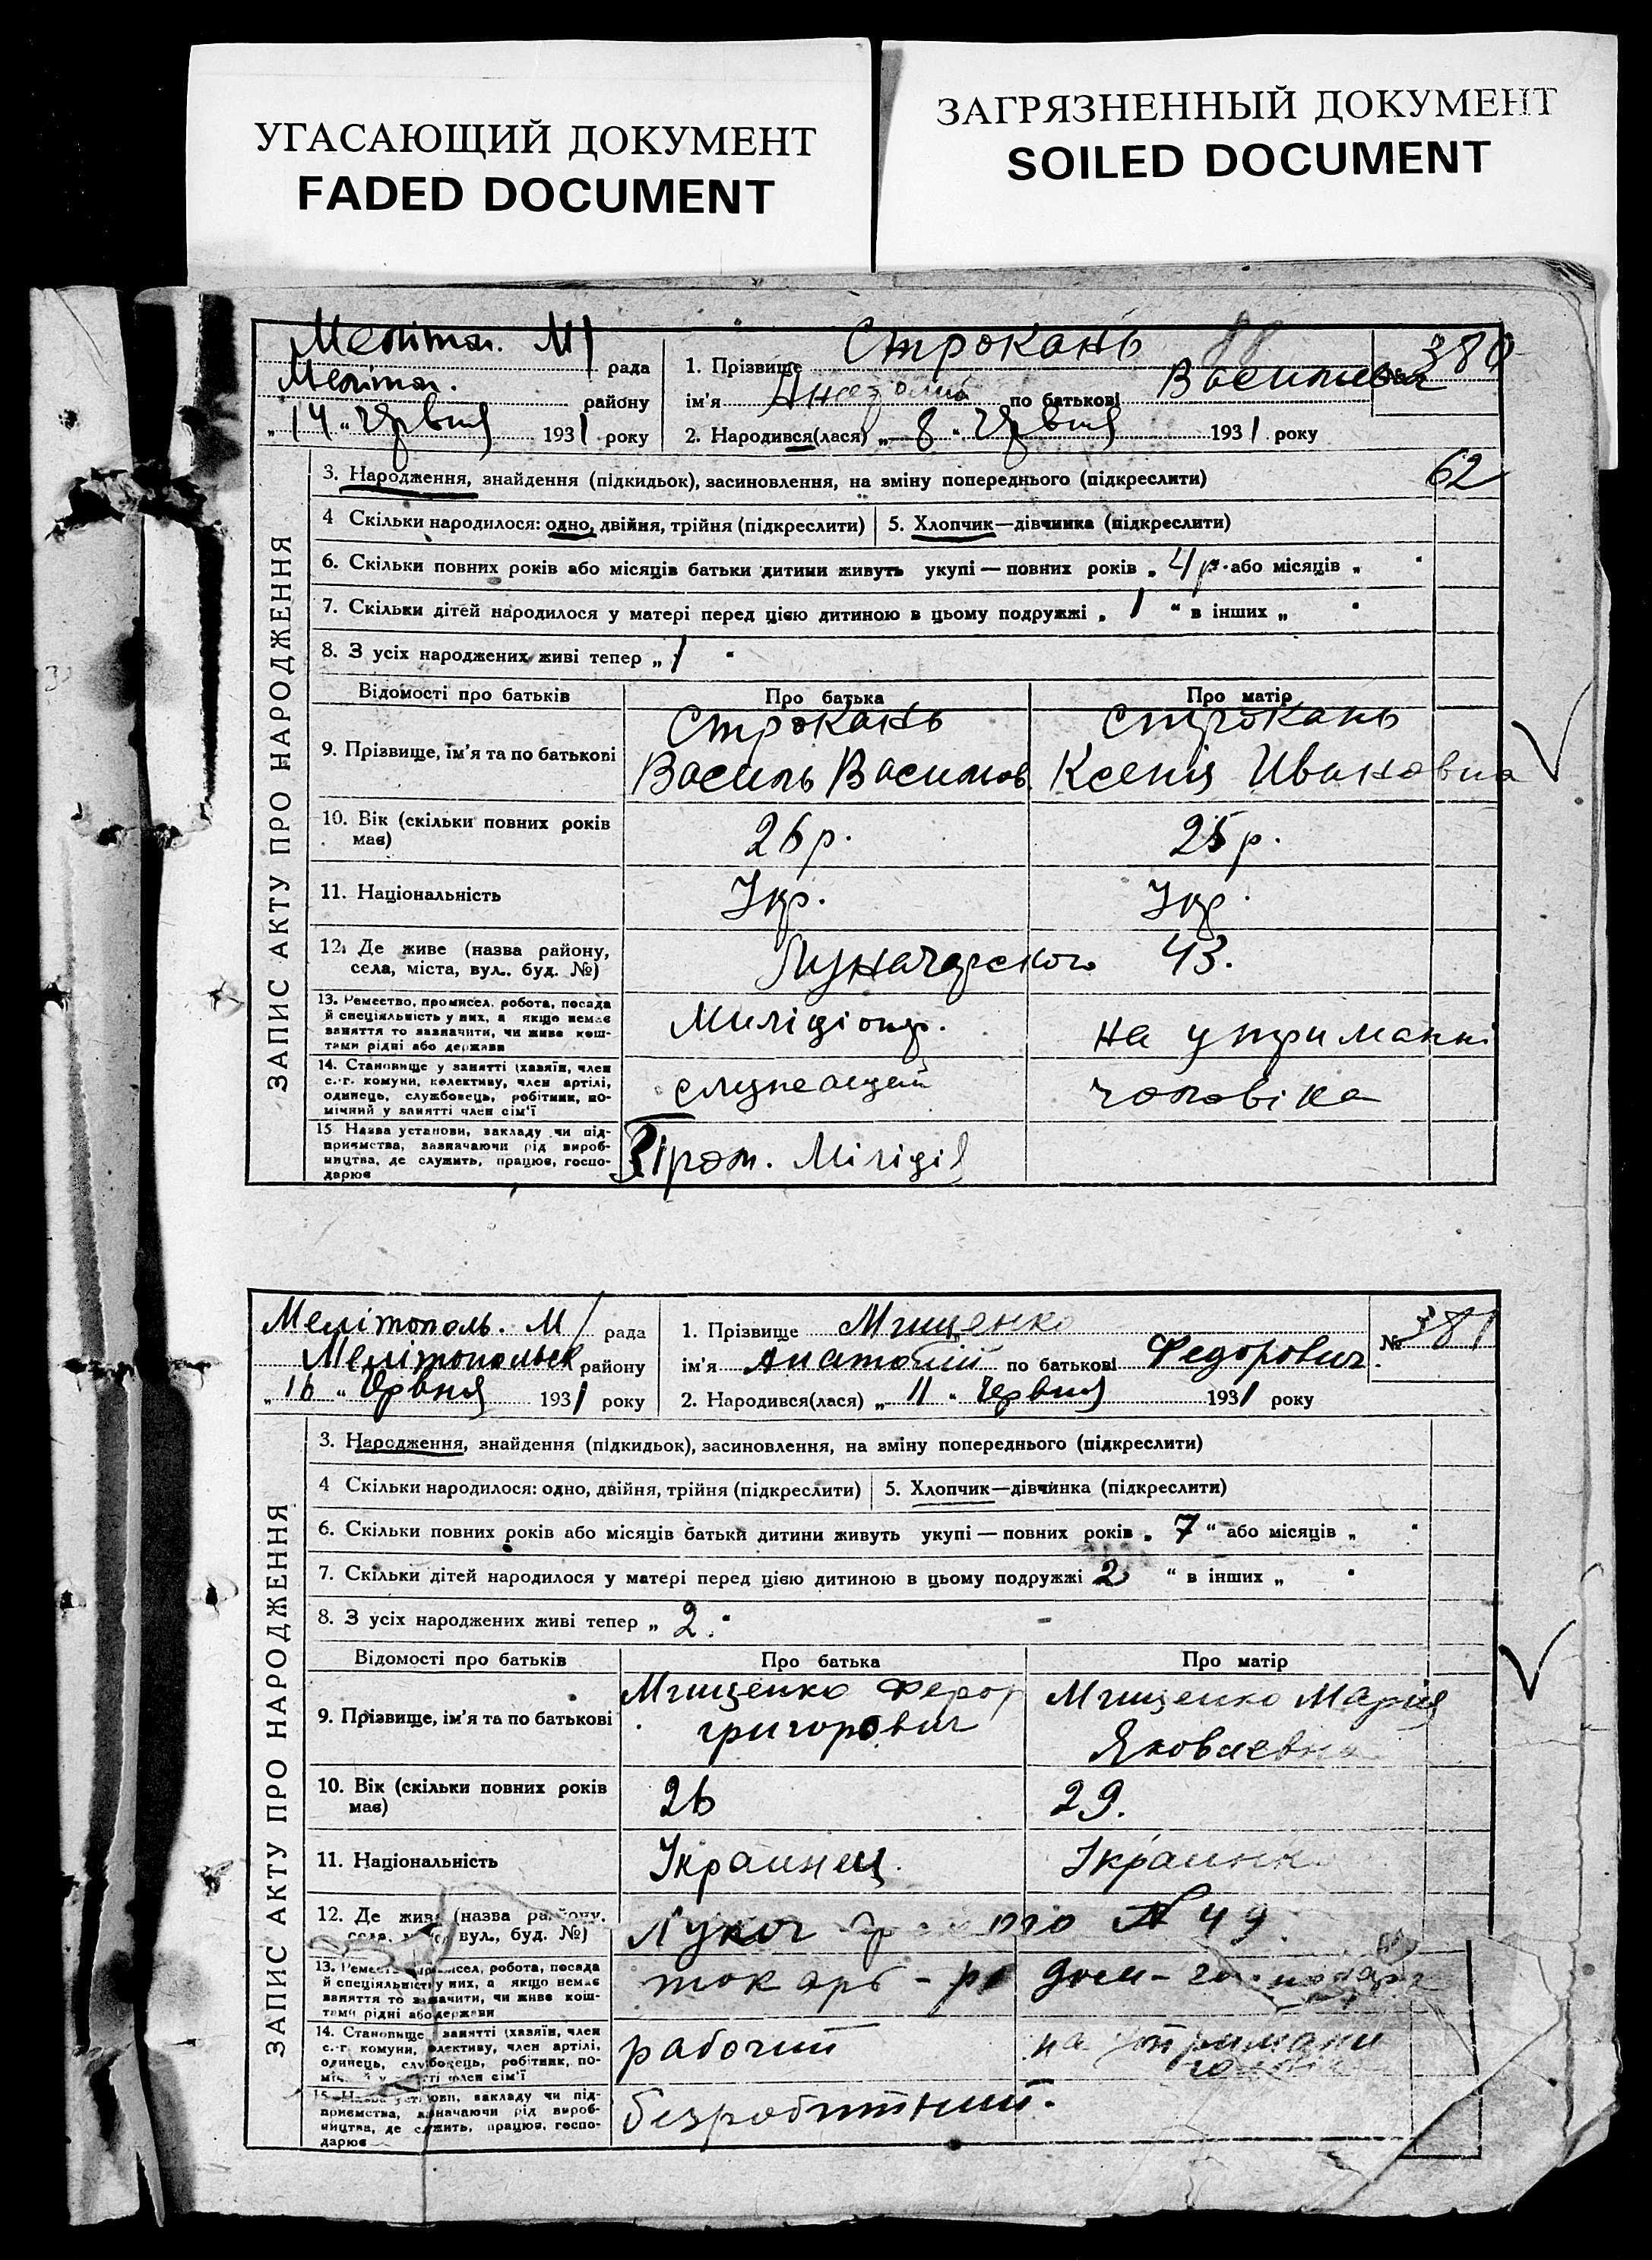 УГАСАЮЩИЙ ДОКУМЕНТ
FADED DOCUMENT
ЗАГРЯЗНЕННЫЙ ДОКУМЕНТ
SOILED DOCUMENT
ЗАПИС АКТУ ПРО НАРОДЖЕННЯ
Меліт. М/ рада
Меліт. району
„14“ Червня 1931 року
1. Прізвище Строкань
№ 380
ім'я Анатолий по батькові
2. Народився(лася) „8“ Червня 1931 року
3. Народження, знайдення (підкидьок), засиновлення, на зміну попереднього (підкреслити)
62
4 Скільки народилося: одно, двійня, трійня (підкреслити) 5. Хлопчик—дівчинка (підкреслити)
6. Скільки повних років або місяців батьки дитини живуть укупі — повних років „4 р. або місяців „ “
7. Скільки дітей народилося у матері перед цією дитиною в цьому подружжі „1“ в інших „ “
8. З усіх народжених живі тепер „1“
Відомості про батьків Про батька Про матір
9. Прізвище, ім'я та по батькові
Строкань
Василь Васильов.
Строкань
Ксенія Ивановна
10. Вік (скільки повних років має) 26 р. 25 р.
11. Національність Укр. Укр.
12. Де живе (назва району, села, міста, вул., буд. №) Луначарского 43.
13. Ремество, промисел, робота, посада
й спеціяльність у них, а якщо немає
заняття то зазначити, чи живе кош-
тами рідні або держави
Міліціонр.
на утриманні
14. Становище у занятті (хазяїн, член
с.-г. комуни, колективу, член артілі,
одинець, службовець, робітник, по-
мічний у занятті член сім'ї
служащий
чоловіка
15 Назва установи, закладу чи під-
приємства, зазначаючи рід вироб-
ництва, де служить, працює, госпо-
дарює
Міліції
ЗАПИС АКТУ ПРО НАРОДЖЕННЯ
Мелітополь. М/ рада
Мелітопольск району
„16“ Червня 1931 року
1. Прізвище Міщенко
№ 381
ім'я Анатолій по батькові Федорович.
2. Народився(лася) „11“ Червня 1931 року
3. Народження, знайдення (підкидьок), засиновлення, на зміну попереднього (підкреслити)
4 Скільки народилося: одно, двійня, трійня (підкреслити) 5. Хлопчик—дівчинка (підкреслити)
6. Скільки повних років або місяців батьки дитини живуть укупі — повних років „7“ або місяців „ “
7. Скільки дітей народилося у матері перед цією дитиною в цьому подружжі 2 “ в інших „ “
8. З усіх народжених живі тепер „2.“
Відомості про батьків Про батька Про матір
9. Прізвище, ім'я та по батькові
Міщенко Федор
григорович
Міщенко Марія
Яковлевна
10. Вік (скільки повних років має) 26 29.
11. Національність Украинец. Украинк
12. Де живе (назва району, села, вул., буд. №) № 49
13. Ремество, промисел, робота, посада
й спеціяльність у них, а якщо немає
заняття то зазначити, чи живе кош-
тами рідні або держави
токарь
дом-
14. Становище у занятті (хазяїн, член
с.-г. комуни, колективу, член артілі,
одинець, службовець, робітник, по-
мічний у занятті член сім'ї
рабочий
на утримани
15 Назва установи, закладу чи під-
приємства, зазначаючи рід вироб-
ництва, де служить, працює, госпо-
дарює
безробітний.